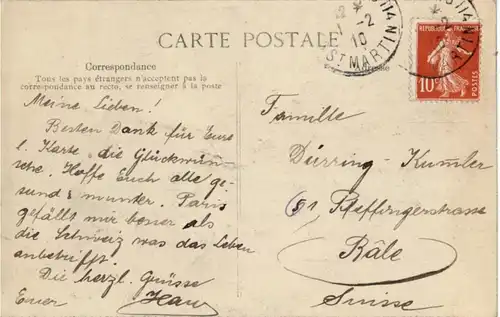 CARTE POSTALE
Correspondance
Tous les pays étrangers n'acceptent pas la
correspondance au recto, se renseigner à la poste
Meine Lieben!
Besten Dank für Eure
l. Karte die Glückwün-
sche. Hoffe Euch alle ge-
sund & munter. Paris
gefällt mir besser als
die Schweiz was das Leben
anbetrifft.
Die herzl. Grüsse
Euer
1-2
10
ST MARTIN
RÉPUBLIQUE FRANÇAISE
10
POSTES
Familie
Dürring-Kumler
91, Pfeffingerstrasse
Bâle
Suisse